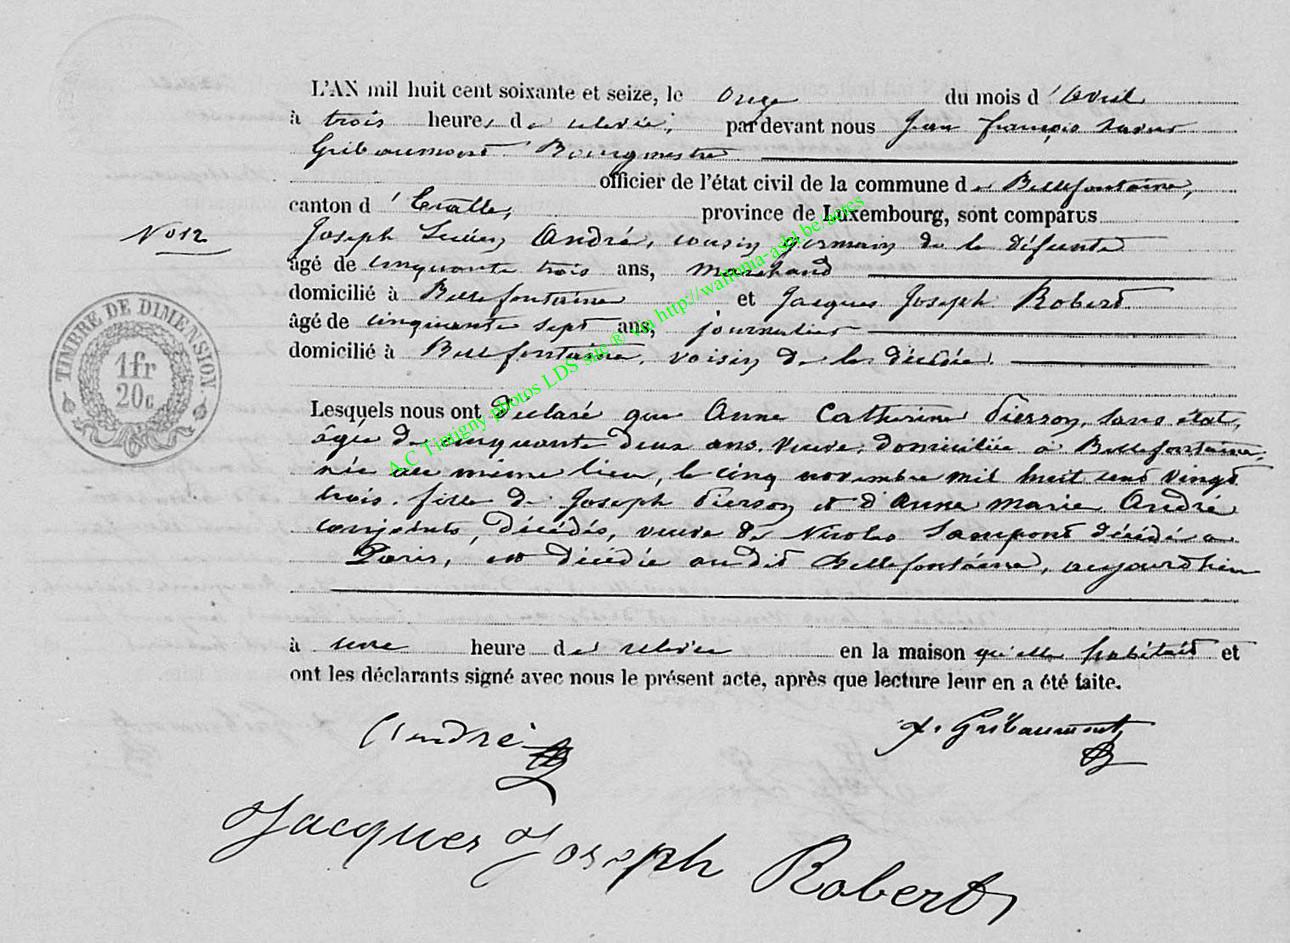 L'AN mil huit cent soixante et seize, le onze du mois d'Avril
à trois heures de relevée, par devant nous Jean François
Gribaumont Bourgmestre
officier de l'état civil de la commune de Bellefontaine,
canton d'Etalle, province de Luxembourg, sont comparus
No 12
Joseph André, cousin germain de la défunte
âgé de cinquante trois ans, marchand
domicilié à Bellefontaine et Jacques Joseph Robert
âgé de cinquante sept ans, journalier
domicilié à Bellefontaine, voisin de la décédée.
TIMBRE DE DIMENSION.
1fr
20c
Lesquels nous ont déclaré que Anne Catherine Pierson, sans état,
âgée de cinquante deux ans, veuve, domiciliée à Bellefontaine,
née au même lieu, le cinq novembre mil huit cent vingt
trois, fille de Joseph Pierson et d'Anne Marie André
conjoints, décédés, veuve de Nicolas Lampont décédé à
Paris, est décédée au dit Bellefontaine, aujourd'hui
à une heure de relevée en la maison qu'elle habitait et
ont les déclarants signé avec nous le présent acte, après que lecture leur en a été faite.
André
Gribaumont
Jacques Joseph Robert
A.C Tintigny photos LDS site ® via http://wallonia-asbl.be actes